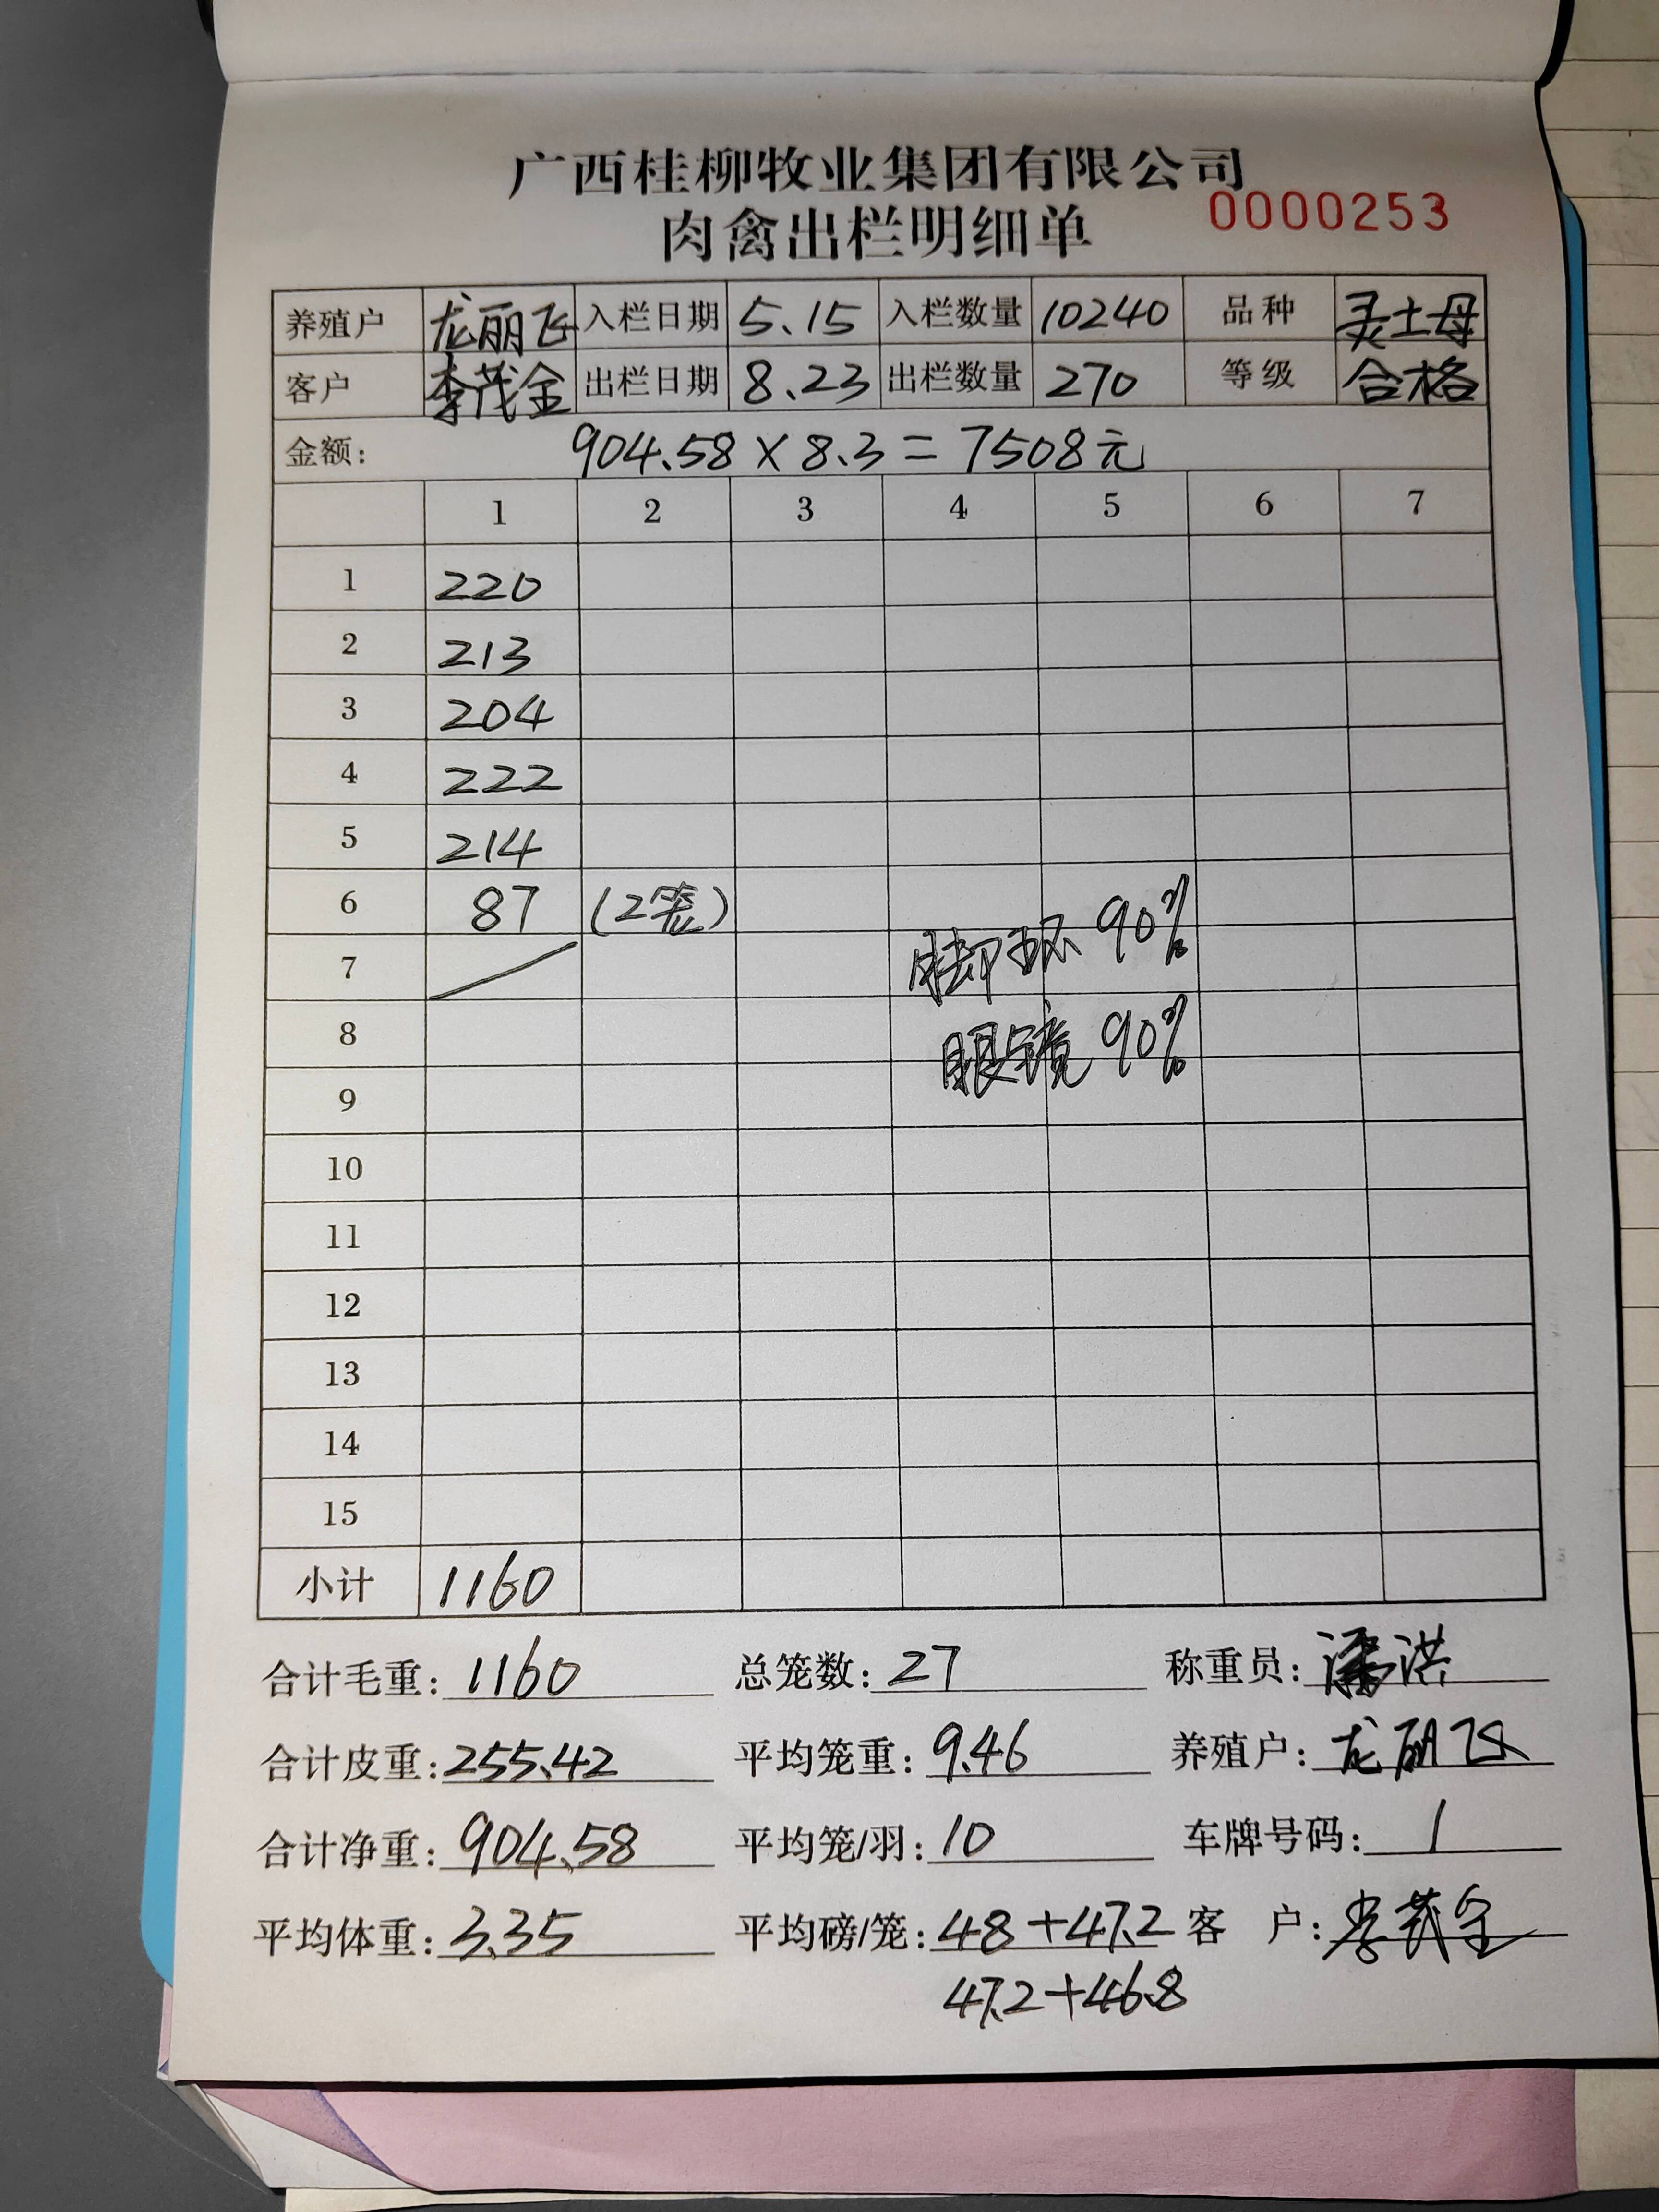 广西桂柳牧业集团有限公司
肉禽出栏明细单 0000253
养殖户 龙丽飞 入栏日期 5.15 入栏数量 10240 品种 灵土母
客户 李茂金 出栏日期 8.23 出栏数量 270 等级 合格
金额: 904.58 × 8.3 = 7508元
1 2 3 4 5 6 7
1 220
2 213
3 204
4 222
5 214
6 87 (2笼)
脚环 90%
7
8
眼镜 90%
9
10
11
12
13
14
15
小计 1160
合计毛重: 1160 总笼数: 27 称重员: 潘洪
合计皮重: 255.42 平均笼重: 9.46 养殖户: 龙丽飞
合计净重: 904.58 平均笼/羽: 10 车牌号码: 1
平均体重: 3.35 平均磅/笼: 48+47.2 客 户: 李茂金
47.2+46.8